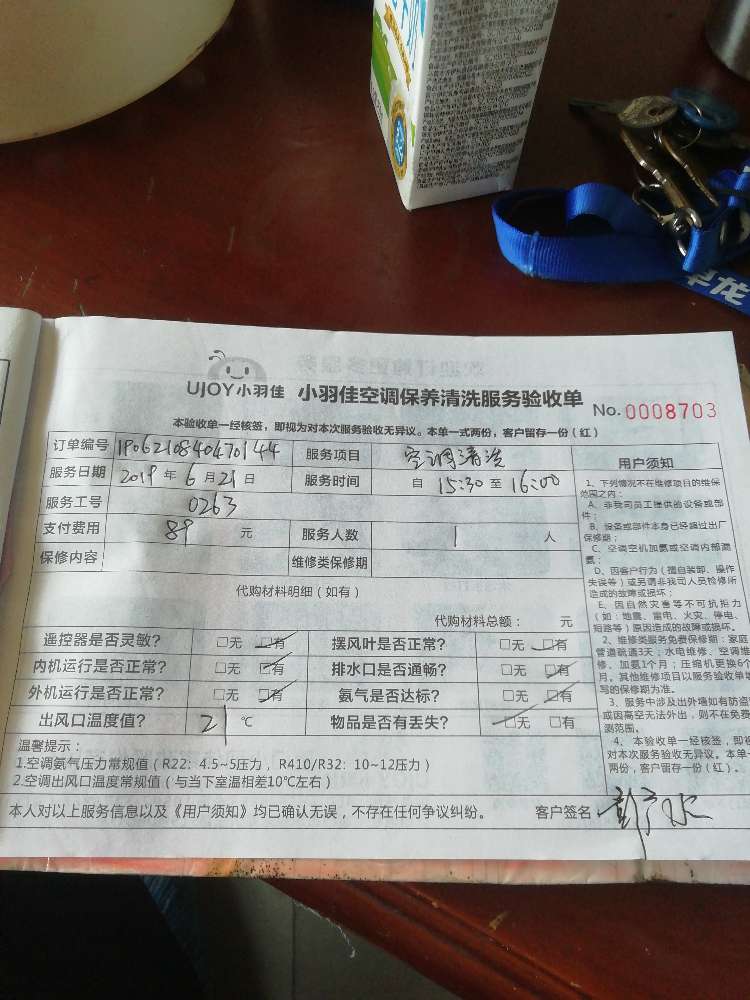 UJOY小羽佳 小羽佳空调保养清洗服务验收单 No. 0008703
本验收单一经核签,即视为对本次服务验收无异议。本单一式两份,客户留存一份(红)
订单编号 1906210840470144 服务项目 空调清洗
服务日期 2019 年 6 月 21 日 服务时间 自 15:30 至 16:00
服务工号 0263
支付费用 89 元 服务人数 1 人
保修内容 维修类保修期
代购材料明细(如有)
代购材料总额: 元
遥控器是否灵敏? □无 □有 摆风叶是否正常? □无 □有
内机运行是否正常? □无 □有 排水口是否通畅? □无 □有
外机运行是否正常? □无 □有 氨气是否达标? □无 □有
出风口温度值? 21 ℃ 物品是否有丢失? □无 □有
温馨提示:
1.空调氨气压力常规值(R22:4.5~5压力,R410/R32:10~12压力)
2.空调出风口温度常规值(与当下室温相差10℃左右)
本人对以上服务信息以及《用户须知》均已确认无误,不存在任何争议纠纷。 客户签名
用户须知
1、下列情况不在维修项目的维保
范围之内:
A、非我司员工提供的设备或部
件;
B、设备或部件本身已经超过出厂
保修期;
C、空调空机加氨或空调内部漏
氨;
D、因客户行为(擅自装卸、操作
失误等)或另请非我司人员检修所
造成的故障或损坏;
E、因自然灾害等不可抗拒力
(如:地震、雷电、火灾、停电、
短路等)原因造成的故障或损坏。
2、维修类服务免费保修期:家庭
管道疏通3天;水电维修、空调维
修、加氨1个月;压缩机更换6个
月。其他维修项目以服务验收单填
写的保修期为准。
3、服务中涉及出外墙如有防盗
或因高空无法外出,则不在免费
测范围。
4、本验收单一经核签,即视
对本次服务验收无异议。本单一
两份,客户留存一份(红)。